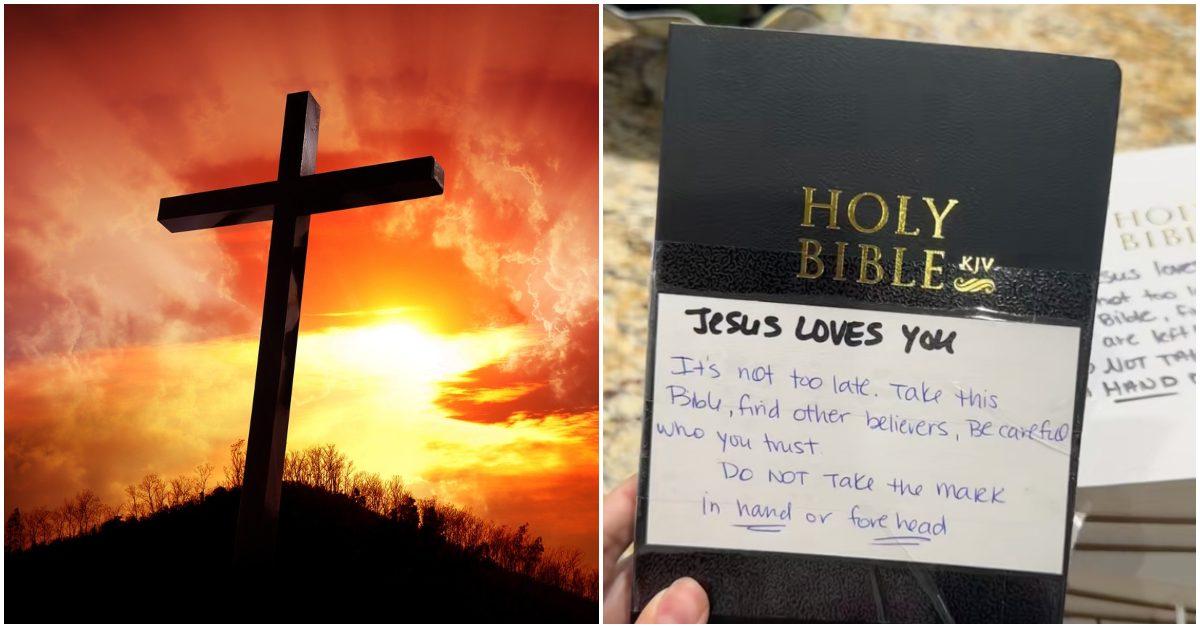 HOLY
BIBLE KJV
JESUS LOVES YOU
It's not too late. Take this
Bible, find other believers, Be careful
who you trust.
DO NOT TAKE the MARK
in hand or forehead
HOLY
BIBL
sus loves
not too l
Bible, fi
are left
NOT TA
HAND